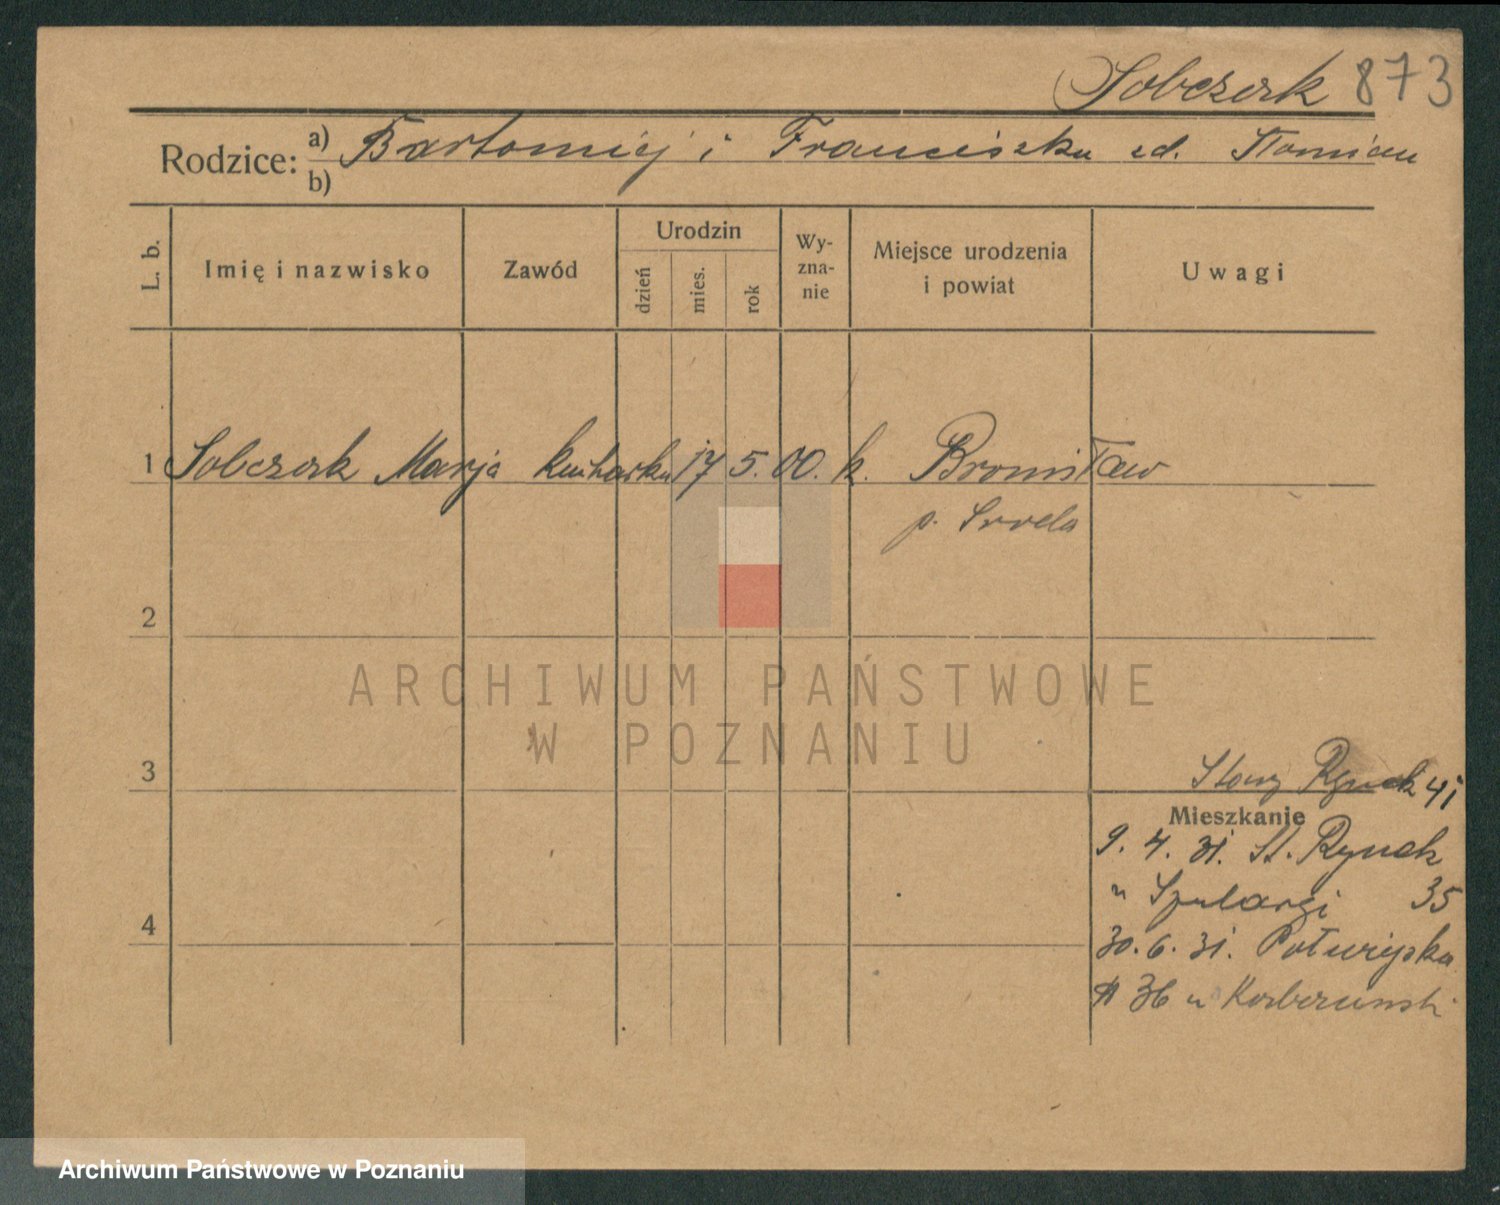 Sobczak 873
Rodzice: a) Bartomiej i Franciszka zd.
b)
L. b.
Imię i nazwisko
Zawód
Urodzin
dzień
mies.
rok
Wy-
zna-
nie
Miejsce urodzenia
i powiat
Uwagi
1 Sobczak Marja kucharka 17 5. 00. k. Bronisław
p. Środa
2
ARCHIWUM PAŃSTWOWE
W POZNANIU
3
Stary Rynek 41
Mieszkanie
9. 4. 31. St. Rynek
u Szulargi 35
4
30. 6. 31. Półwiejska
36 u
Archiwum Państwowe w Poznaniu